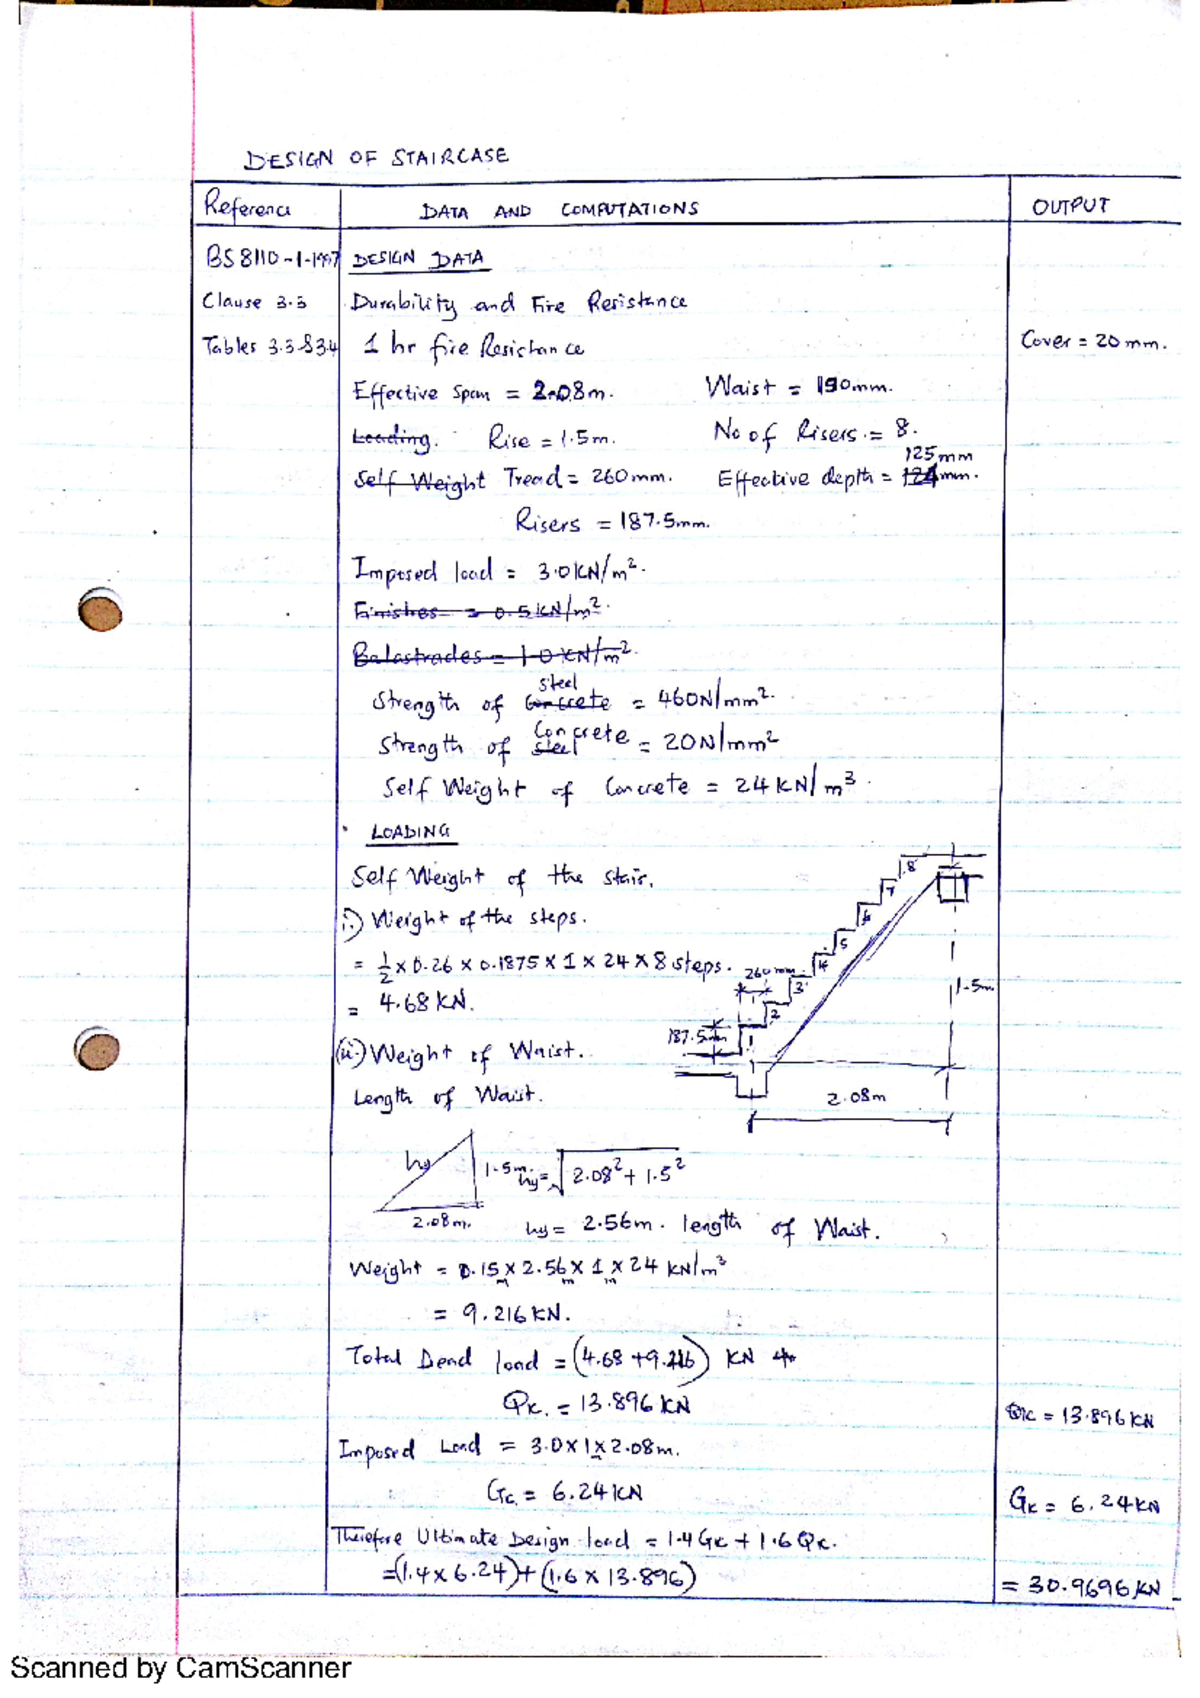 DESIGN OF STAIRCASE
Reference DATA AND COMPUTATIONS OUTPUT
BS 8110-1-1997 DESIGN DATA
Clause 3.3 Durability and Fire Resistance
Tables 3.3 & 3.4 1 hr fire Resistance Cover = 20mm.
Effective span = 2.08m. Waist = 150mm.
Loading. Rise = 1.5m. No of Risers = 8.
125mm
Self Weight Tread = 260mm. Effective depth = 124mm.
Risers = 187.5mm.
Imposed load = 3.0KN/m².
Finishes = 0.5KN/m².
Balastrades = 1.0 KN/m².
steel
Strength of Concrete = 460N/mm².
Concrete
Strength of steel = 20N/mm²
Self Weight of Concrete = 24KN/m³.
LOADING
Self Weight of the stair.
i.) Weight of the steps.
= ½ x 0.26 x 0.1875 x 1 x 24 x 8 steps.
= 4.68 KN.
(ii.) Weight of Waist.
Length of Waist.
1 2 3 4 5 6 7 8
260mm
187.5mm
1.5m
2.08m
hy 1.5m hy = √2.08² + 1.5²
2.08m. hy = 2.56m. length of Waist.
Weight = 0.15 x 2.56 x 1 x 24 KN/m³
m m m
= 9.216KN.
Total Dead load = (4.68 + 9.216) KN
QK. = 13.896KN QK = 13.896KN
Imposed Load = 3.0 x 1 x 2.08m.
GC. = 6.24KN GK = 6.24KN
Therefore Ultimate Design load = 1.4GK + 1.6QK.
= (1.4 x 6.24) + (1.6 x 13.896) = 30.9696KN
Scanned by CamScanner